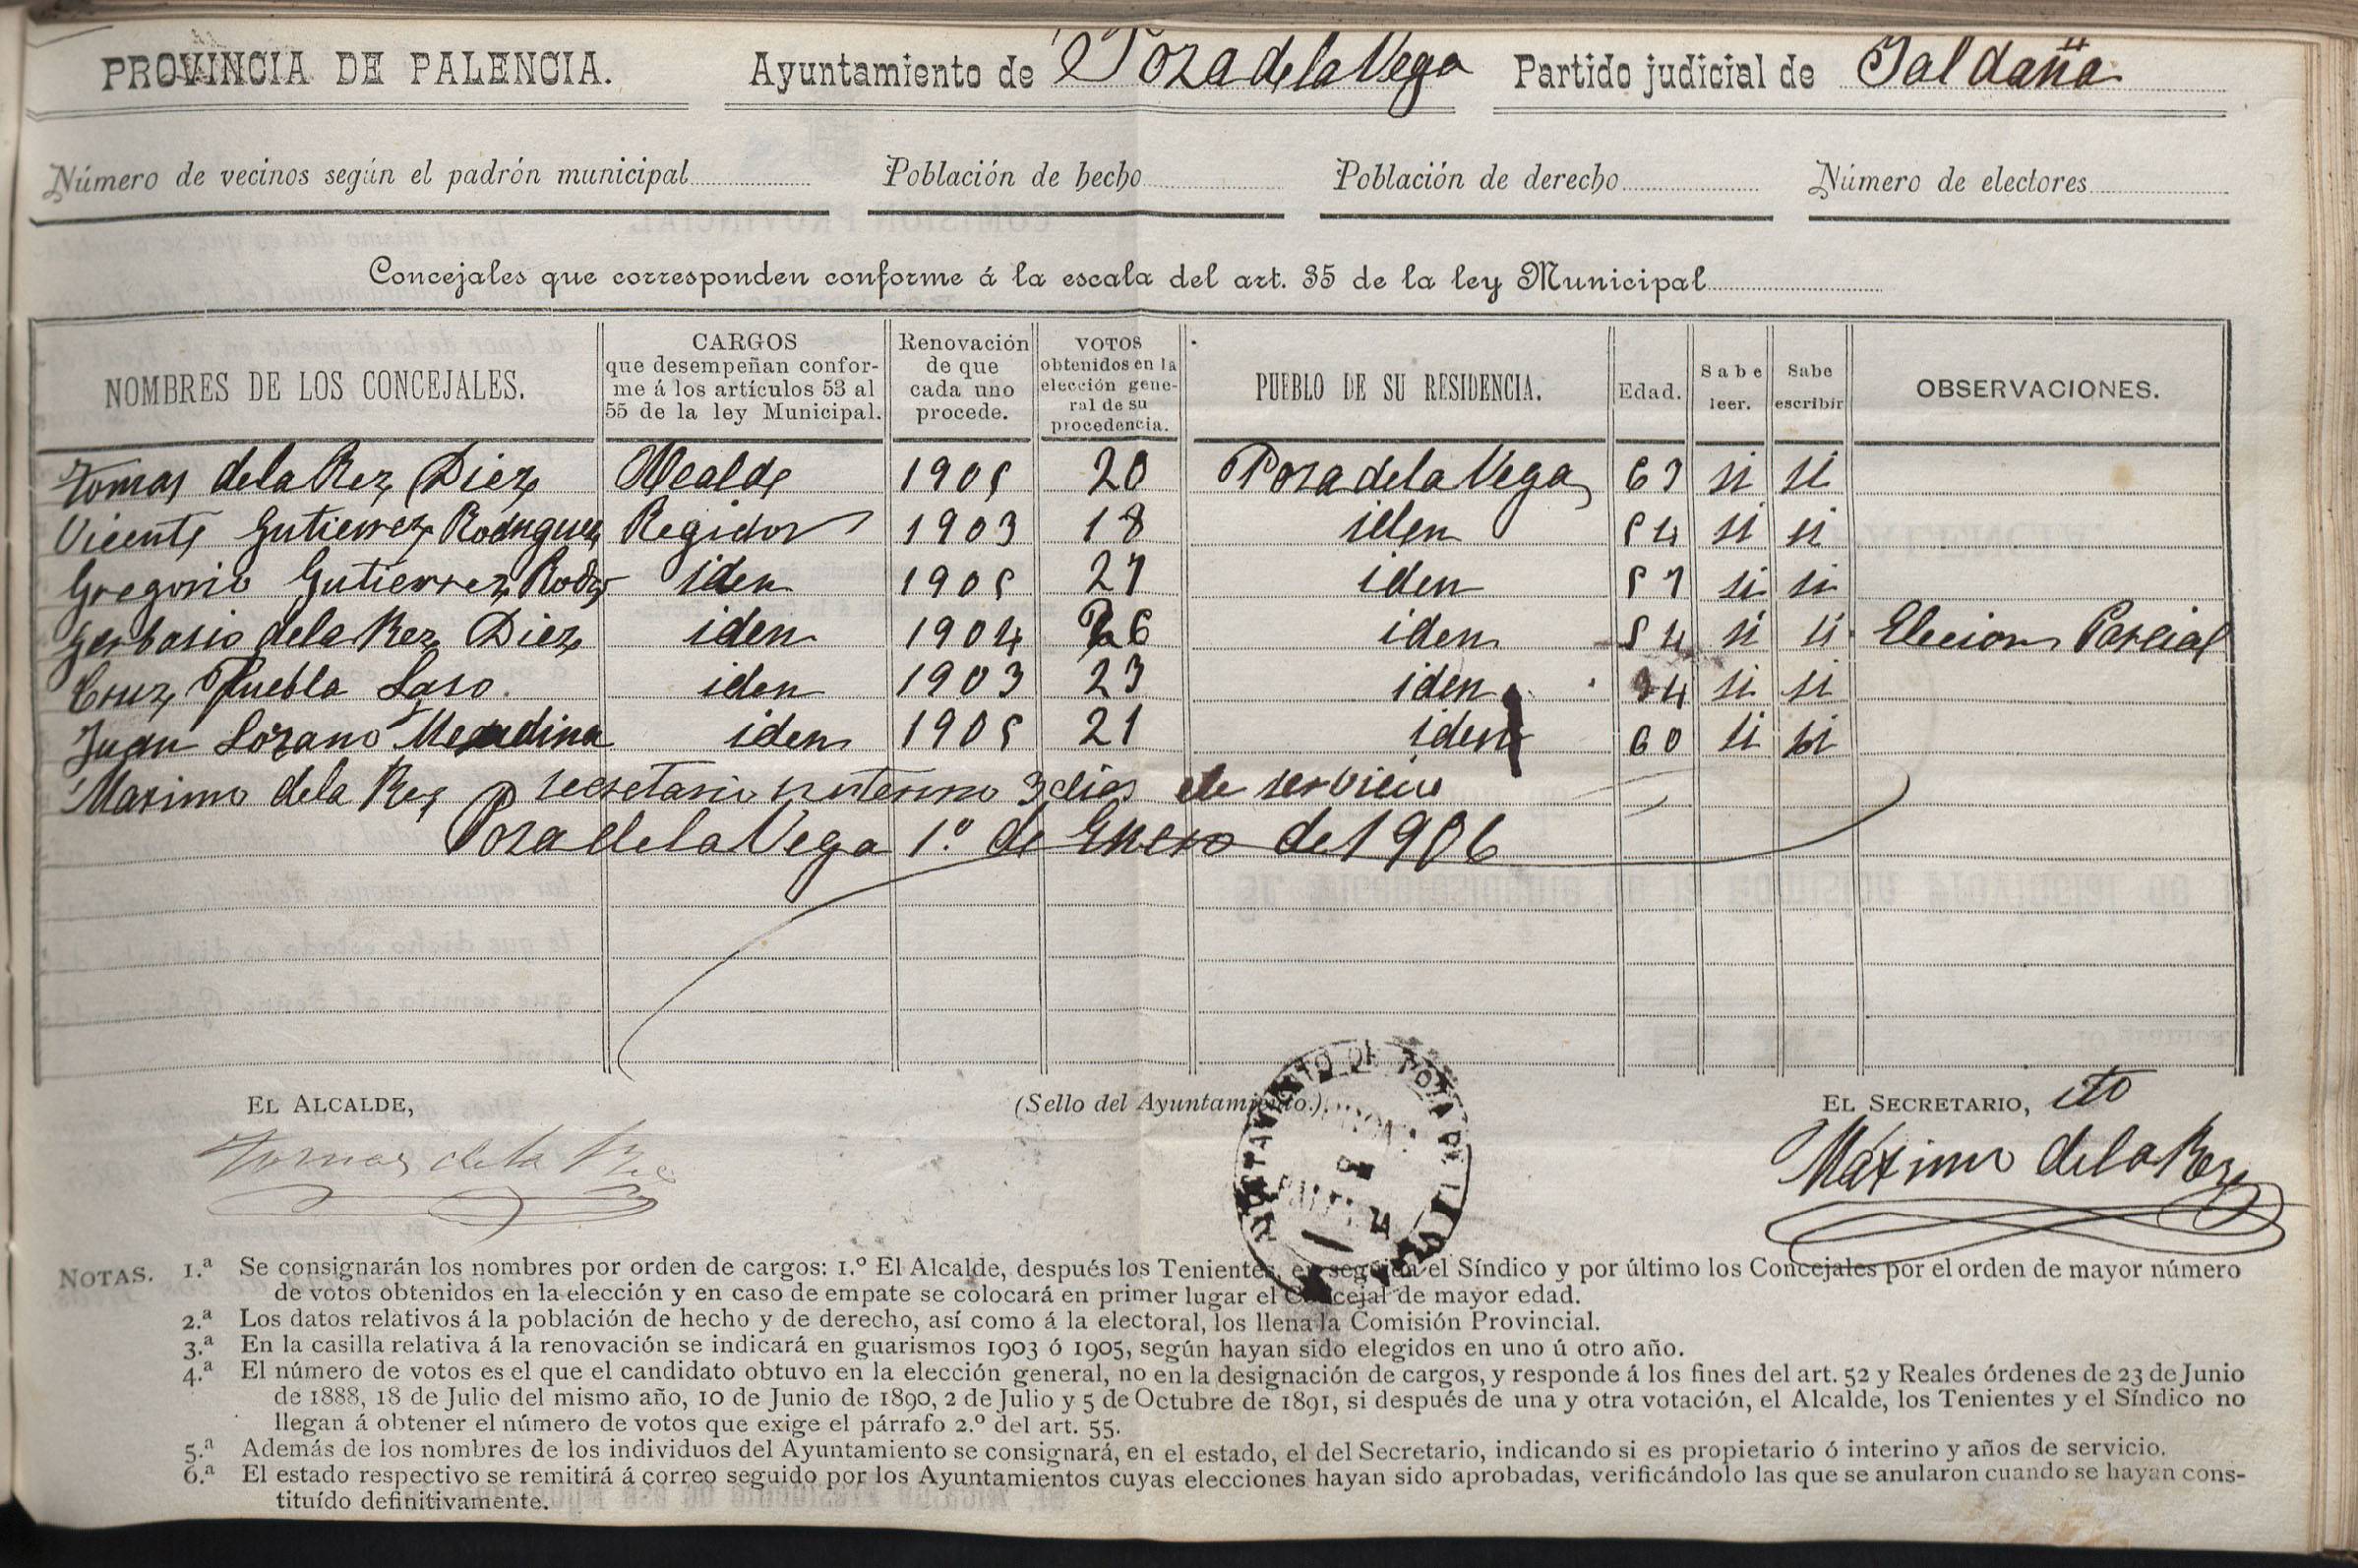 PROVINCIA DE PALENCIA. Ayuntamiento de Poza de la Vega Partido judicial de Saldaña
Número de vecinos según el padrón municipal Población de hecho Población de derecho Número de electores
Concejales que corresponden conforme á la escala del art. 35 de la ley Municipal
NOMBRES DE LOS CONCEJALES. CARGOS que desempeñan confor-me á los artículos 53 al 55 de la ley Municipal. Renovación de que cada uno procede. VOTOS obtenidos en la elección gene-ral de su procedencia. PUEBLO DE SU RESIDENCIA. Edad. Sabe leer. Sabe escribir OBSERVACIONES.
Tomas de la Rez Diez Alcalde 1905 20 Poza de la Vega 63 si si
Vicente Gutierrez Rodriguez Regidor 1903 18 iden 54 si si
Gregorio Gutierrez Rodz iden 1905 27 iden 57 si si
Gerbasio de la Rez Diez iden 1904 26 iden 54 si si Elecion Parcial
Cruz Puebla Laso. iden 1903 23 iden 34 si si
Juan Lozano Medina iden 1905 21 iden 60 si si
Maximo de la Rez secretario interino 3 dias de servicio
Poza de la Vega 1º. de Enero de 1906
EL ALCALDE, (Sello del Ayuntamiento.) EL SECRETARIO, ito
Tomas de la Rez Máximo de la Rez
AYUNTAMIENTO DE POZA DE LA VEGA
NOTAS. 1.ª Se consignarán los nombres por orden de cargos: 1.º El Alcalde, después los Tenientes, en seguida el Síndico y por último los Concejales por el orden de mayor número
de votos obtenidos en la elección y en caso de empate se colocará en primer lugar el Concejal de mayor edad.
2.ª Los datos relativos á la población de hecho y de derecho, así como á la electoral, los llena la Comisión Provincial.
3.ª En la casilla relativa á la renovación se indicará en guarismos 1903 ó 1905, según hayan sido elegidos en uno ú otro año.
4.ª El número de votos es el que el candidato obtuvo en la elección general, no en la designación de cargos, y responde á los fines del art. 52 y Reales órdenes de 23 de Junio
de 1888, 18 de Julio del mismo año, 10 de Junio de 1890, 2 de Julio y 5 de Octubre de 1891, si después de una y otra votación, el Alcalde, los Tenientes y el Síndico no
llegan á obtener el número de votos que exige el párrafo 2.º del art. 55.
5.ª Además de los nombres de los individuos del Ayuntamiento se consignará, en el estado, el del Secretario, indicando si es propietario ó interino y años de servicio.
6.ª El estado respectivo se remitirá á correo seguido por los Ayuntamientos cuyas elecciones hayan sido aprobadas, verificándolo las que se anularon cuando se hayan cons-
tituído definitivamente.